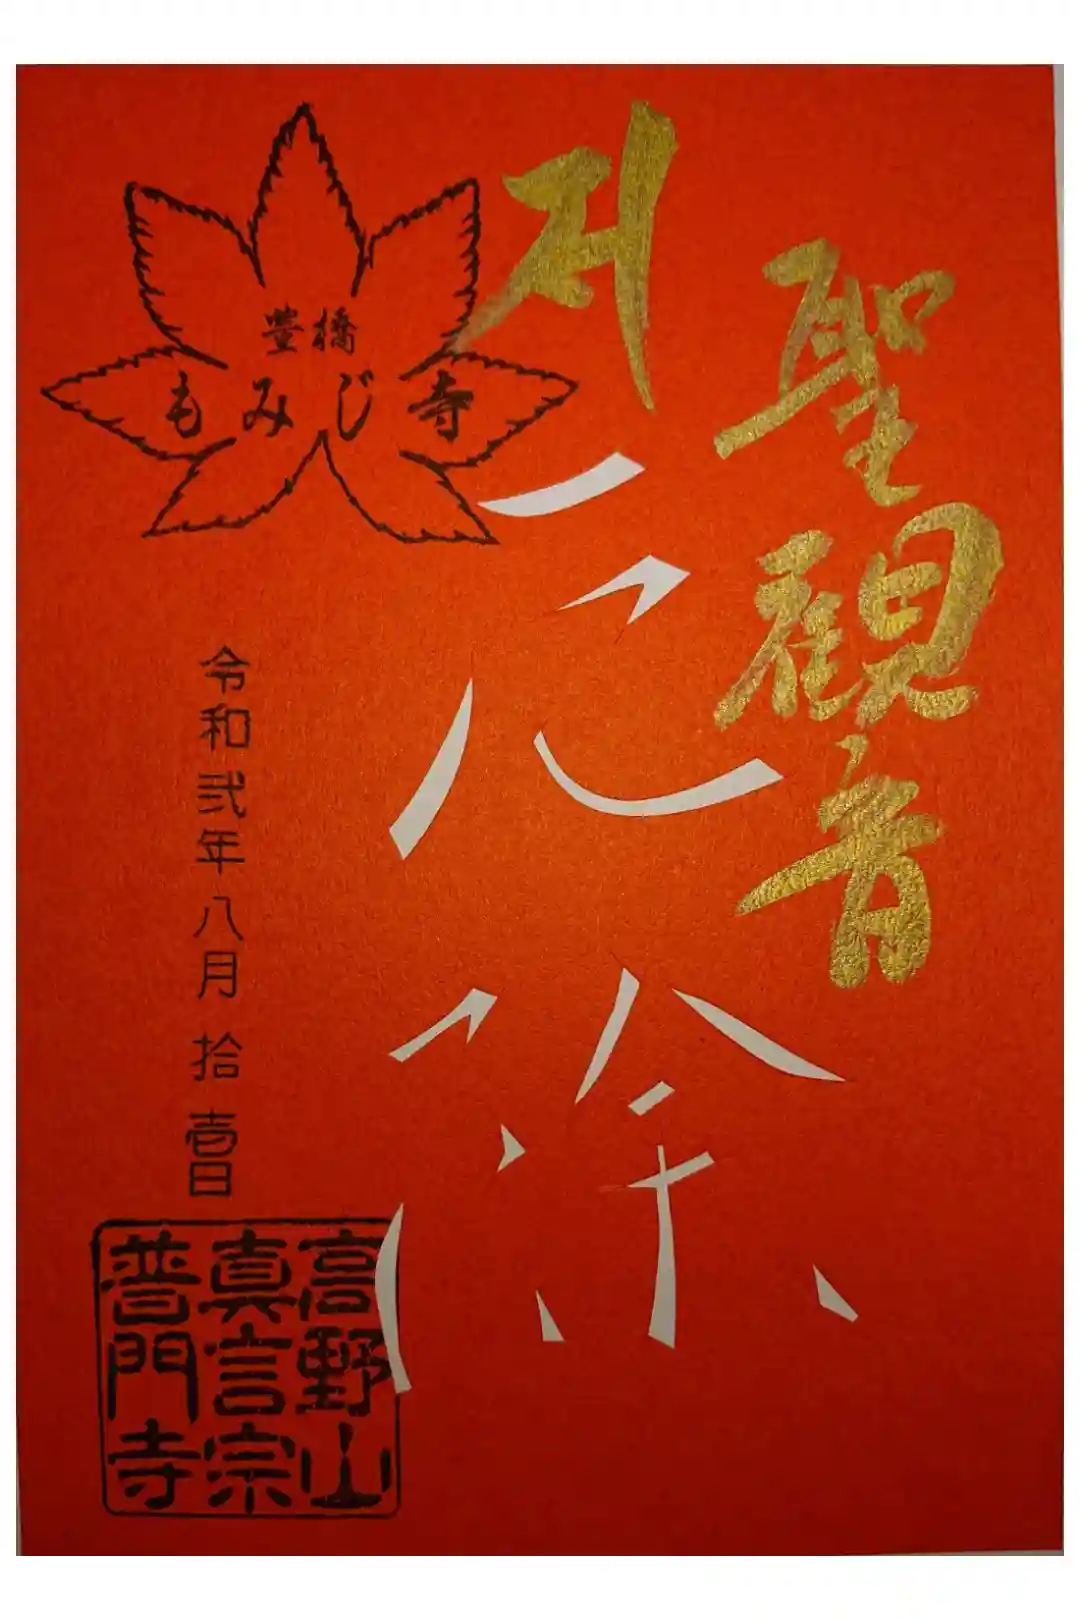 聖観音
厄除
豊橋
もみじ寺
令和弐年八月拾壱日
高野山
真言宗
普門寺